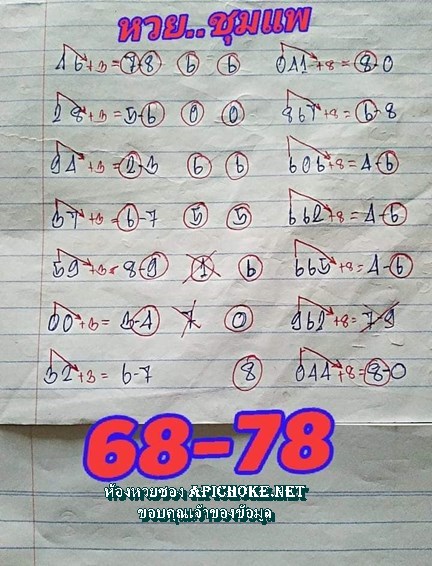 หวย..ชุมแพ
46+3=7-8 6 6 041+8=8-0
28+3=5-6 0 0 867+8=6-8
94+3=2-3 6 6 606+8=4-6
37+3=6-7 5 5 662+8=4-6
59+3=8-9 1 6 665+8=4-6
00+3=3-4 7 0 962+8=7-9
32+3=6-7 8 044+8=8-0
68-78
ห้องหวยซอง APICHOKE.NET
ขอบคุณเจ้าของข้อมูล